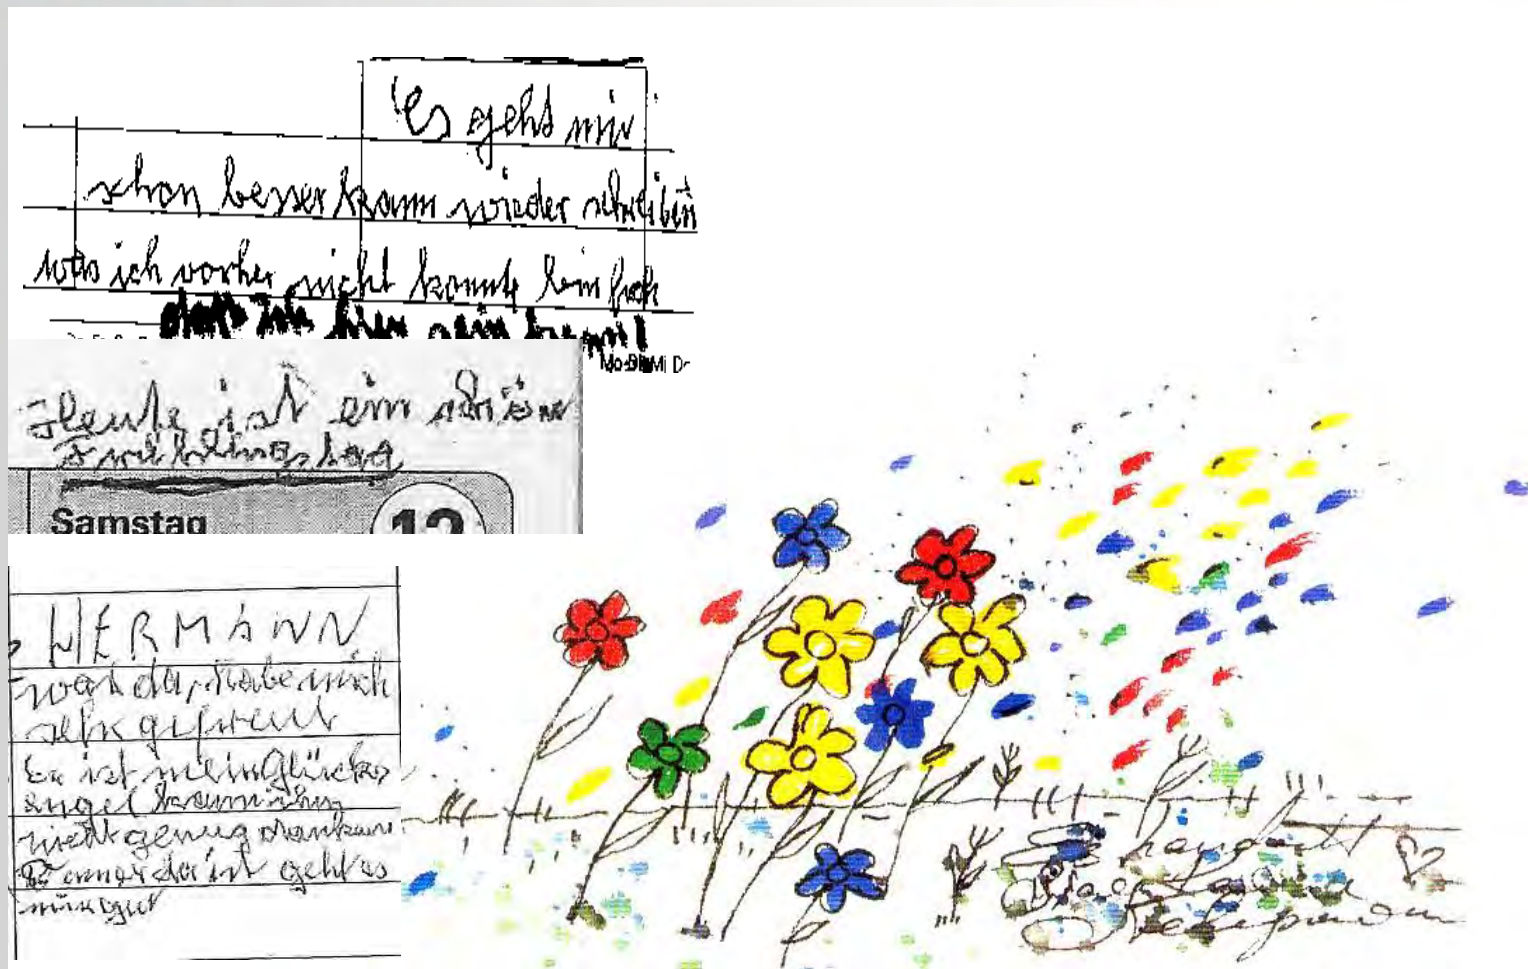 es geht mir
schon besser kann wieder schreiben
was ich vorher nicht konnte bin froh
daß ich hier sein kann!
Mo Di Mi Do
Heute ist ein schöner
Frühlingstag
Samstag
12
HERMANN
war da, habe mich
sehr gefreut
Er ist mein Glücks
engel kann ihm
nicht genug danken
wenn er da ist geht es
mir gut